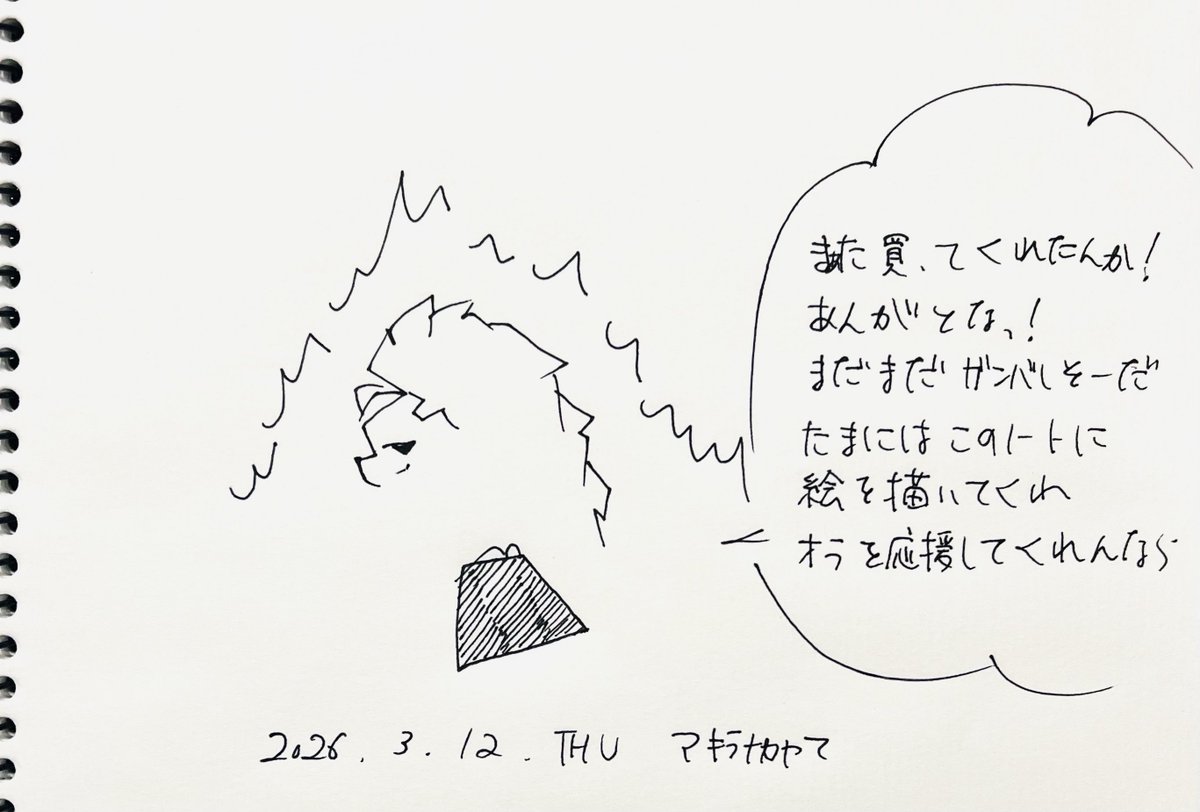 また買ってくれたんか!
あんがとなっ!
まだまだガンバレそーだ
たまにはこのノートに
絵を描いてくれ
オラを応援してくれんなら
2026.3.12.THU